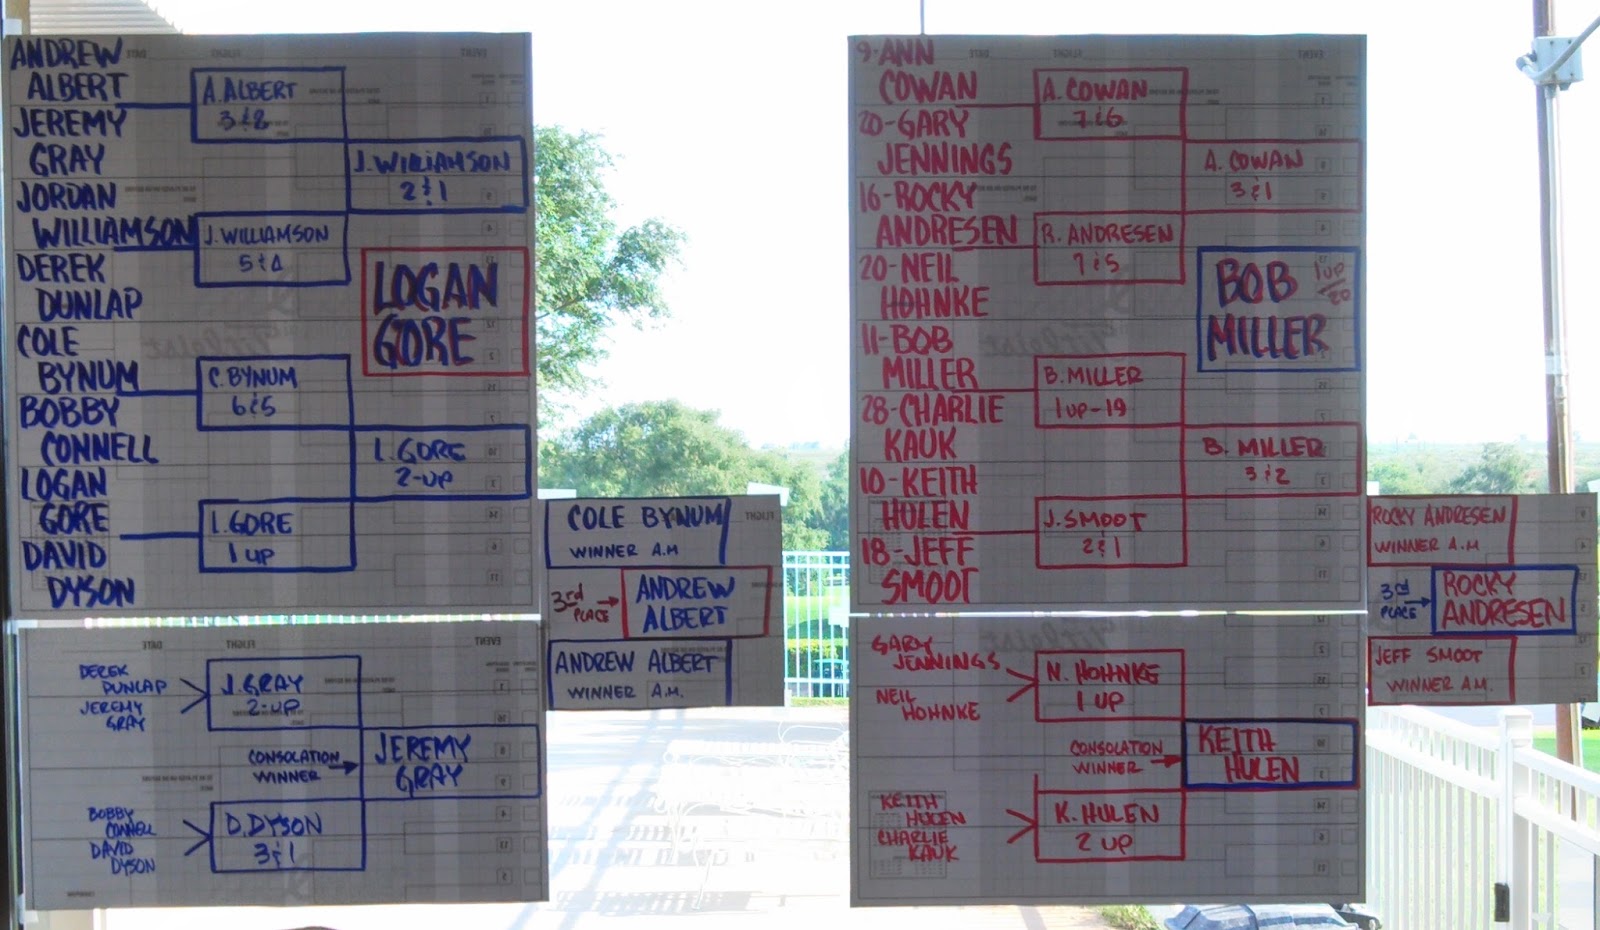 ANDREW
ALBERT
JEREMY
GRAY
JORDAN
WILLIAMSON
DEREK
DUNLAP
COLE
BYNUM
BOBBY
CONNELL
LOGAN
GORE
DAVID
DYSON
A. ALBERT
3 & 2
J. WILLIAMSON
5 & 4
C. BYNUM
6 & 5
L. GORE
1 UP
J. WILLIAMSON
2 & 1
L. GORE
2-UP
LOGAN
GORE
COLE BYNUM
WINNER A.M
3rd
PLACE
ANDREW
ALBERT
ANDREW ALBERT
WINNER A.M.
DEREK
DUNLAP
JEREMY
GRAY
J. GRAY
2-UP
CONSOLATION
WINNER
JEREMY
GRAY
BOBBY
CONNELL
DAVID
DYSON
D. DYSON
3 & 1
EVENT
FLIGHT
DATE
9-ANN
COWAN
20-GARY
JENNINGS
16-ROCKY
ANDRESEN
20-NEIL
HOHNKE
11-BOB
MILLER
28-CHARLIE
KAUK
10-KEITH
HULEN
18-JEFF
SMOOT
A. COWAN
7 & 6
R. ANDRESEN
7 & 5
B. MILLER
1 UP-19
J. SMOOT
2 & 1
A. COWAN
3 & 1
B. MILLER
3 & 2
BOB
MILLER
1 UP
20
ROCKY ANDRESEN
WINNER A.M.
3rd
PLACE
ROCKY
ANDRESEN
JEFF SMOOT
WINNER A.M.
GARY
JENNINGS
NEIL
HOHNKE
N. HOHNKE
1 UP
CONSOLATION
WINNER
KEITH
HULEN
KEITH
HULEN
CHARLIE
KAUK
K. HULEN
2 UP
Titleist